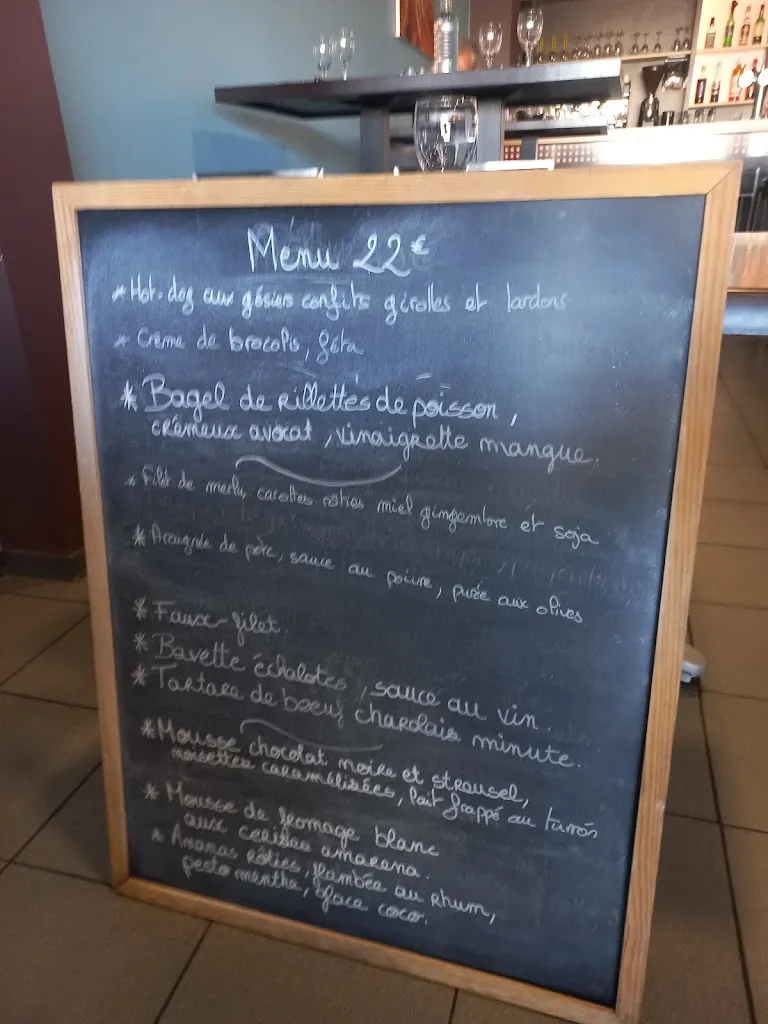 Menu 22€
* Hot-dog aux gésiers confits girolles et lardons
* Crème de brocolis, féta
* Bagel de rillettes de poisson,
crémeux avocat, vinaigrette mangue.
* Filet de merlu, carottes rôties miel gingembre et soja
* Araignée de porc, sauce au poivre, purée aux olives
* Faux-filet.
* Bavette échalotes, sauce au vin.
* Tartare de boeuf charolais minute.
* Mousse chocolat noire et streusel,
noisettes caramélisées, lait frappé au turrón
* Mousse de fromage blanc
aux cerises amarena.
* Ananas rôties, flambée au rhum,
pesto menthe, glace coco.